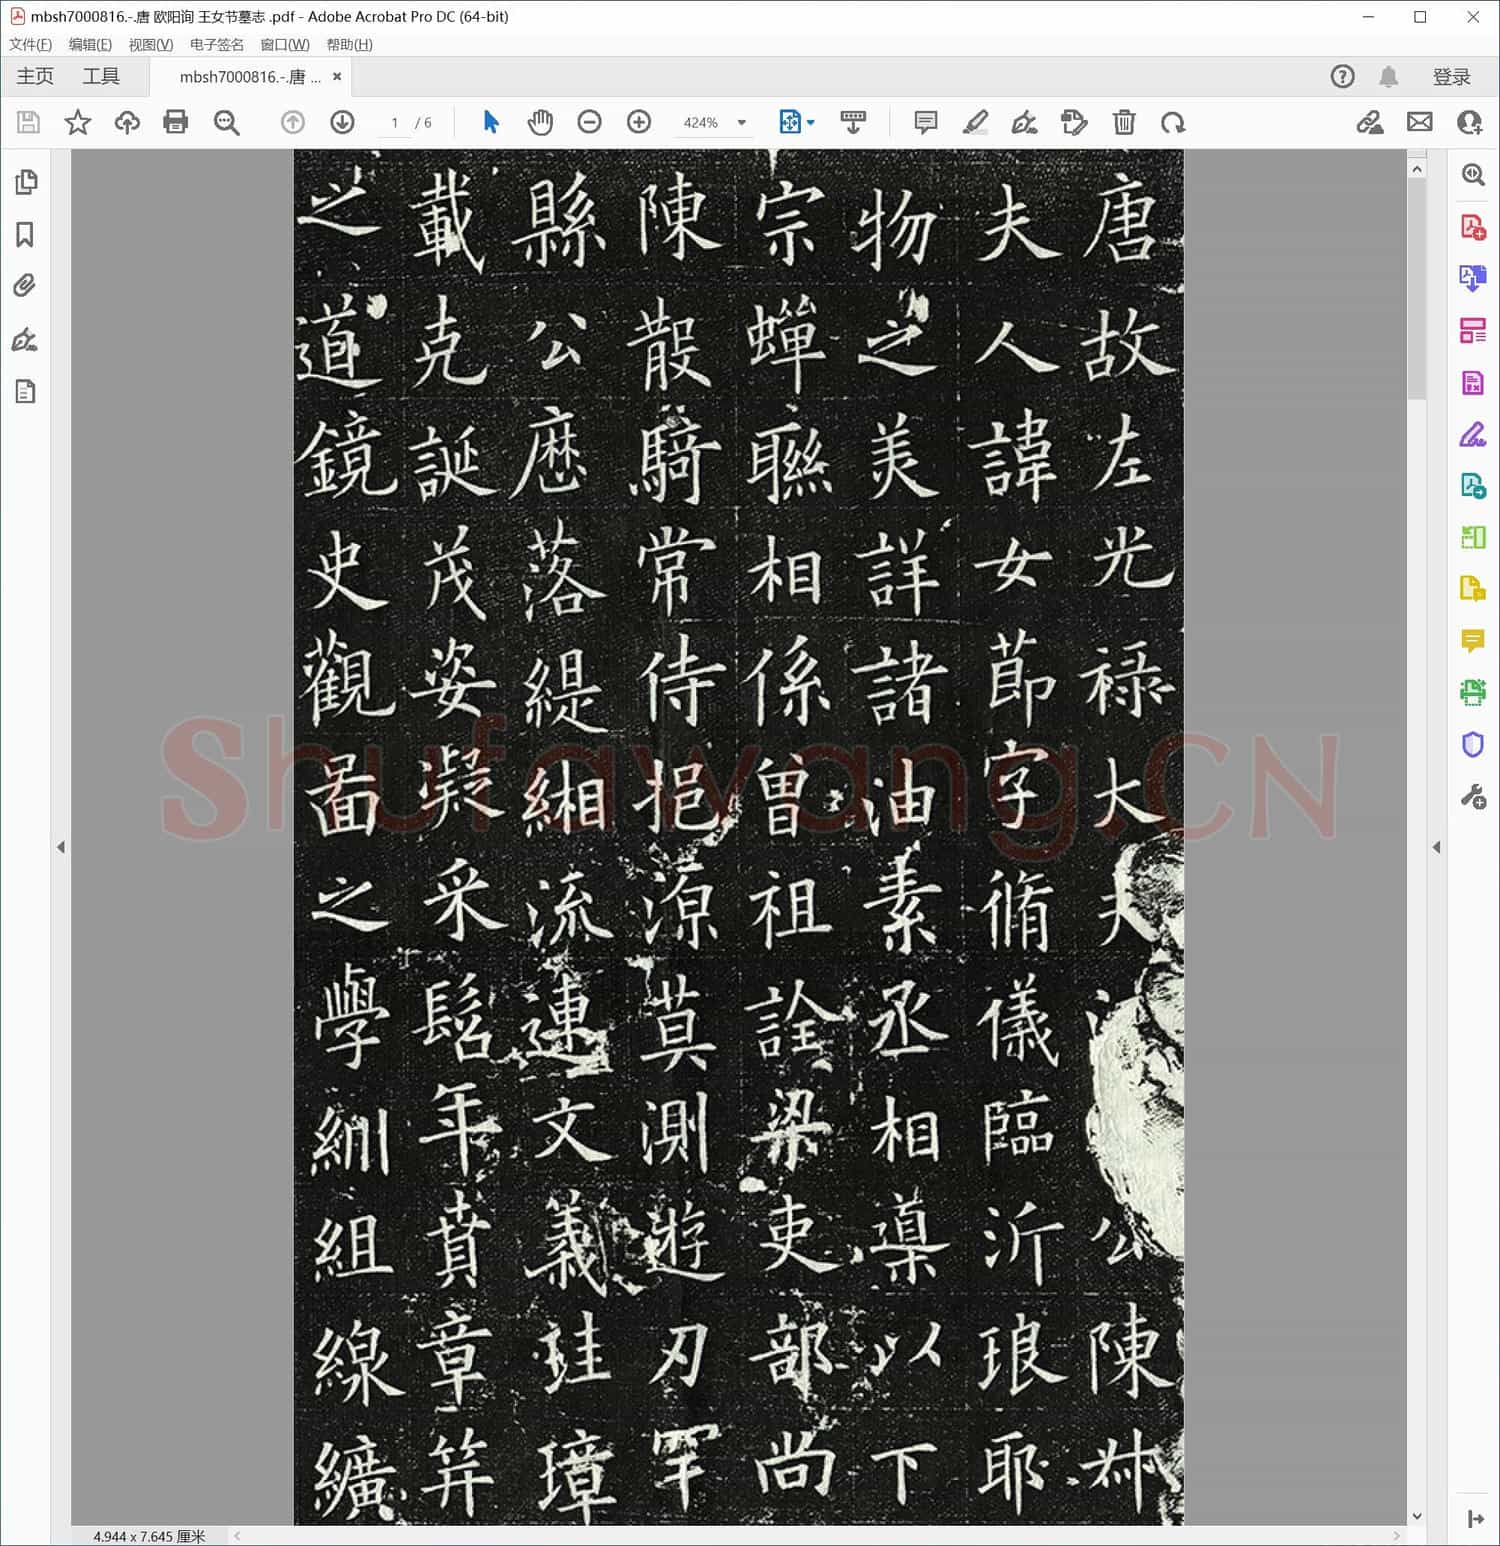 mbsh7000816.-.唐 欧阳询 王女节墓志 .pdf - Adobe Acrobat Pro DC (64-bit)
文件(F) 编辑(E) 视图(V) 电子签名 窗口(W) 帮助(H)
主页 工具 mbsh7000816.-.唐 ... × 登录
1 / 6 424%
唐故左光禄大夫公陳叔
夫人諱女節字脩儀臨沂琅耶
物之美詳諸油素丞相導以下
宗蟬聮相係曽祖詮梁吏部尚
陳散騎常侍挹源莫測遊刃罕
縣公歴落緹緗流連文義珪璋
載克誕茂姿凝采髫年賁章笄
之道鏡史觀啚之學紃組線纊
Shufawang.CN
4.944 x 7.645 厘米